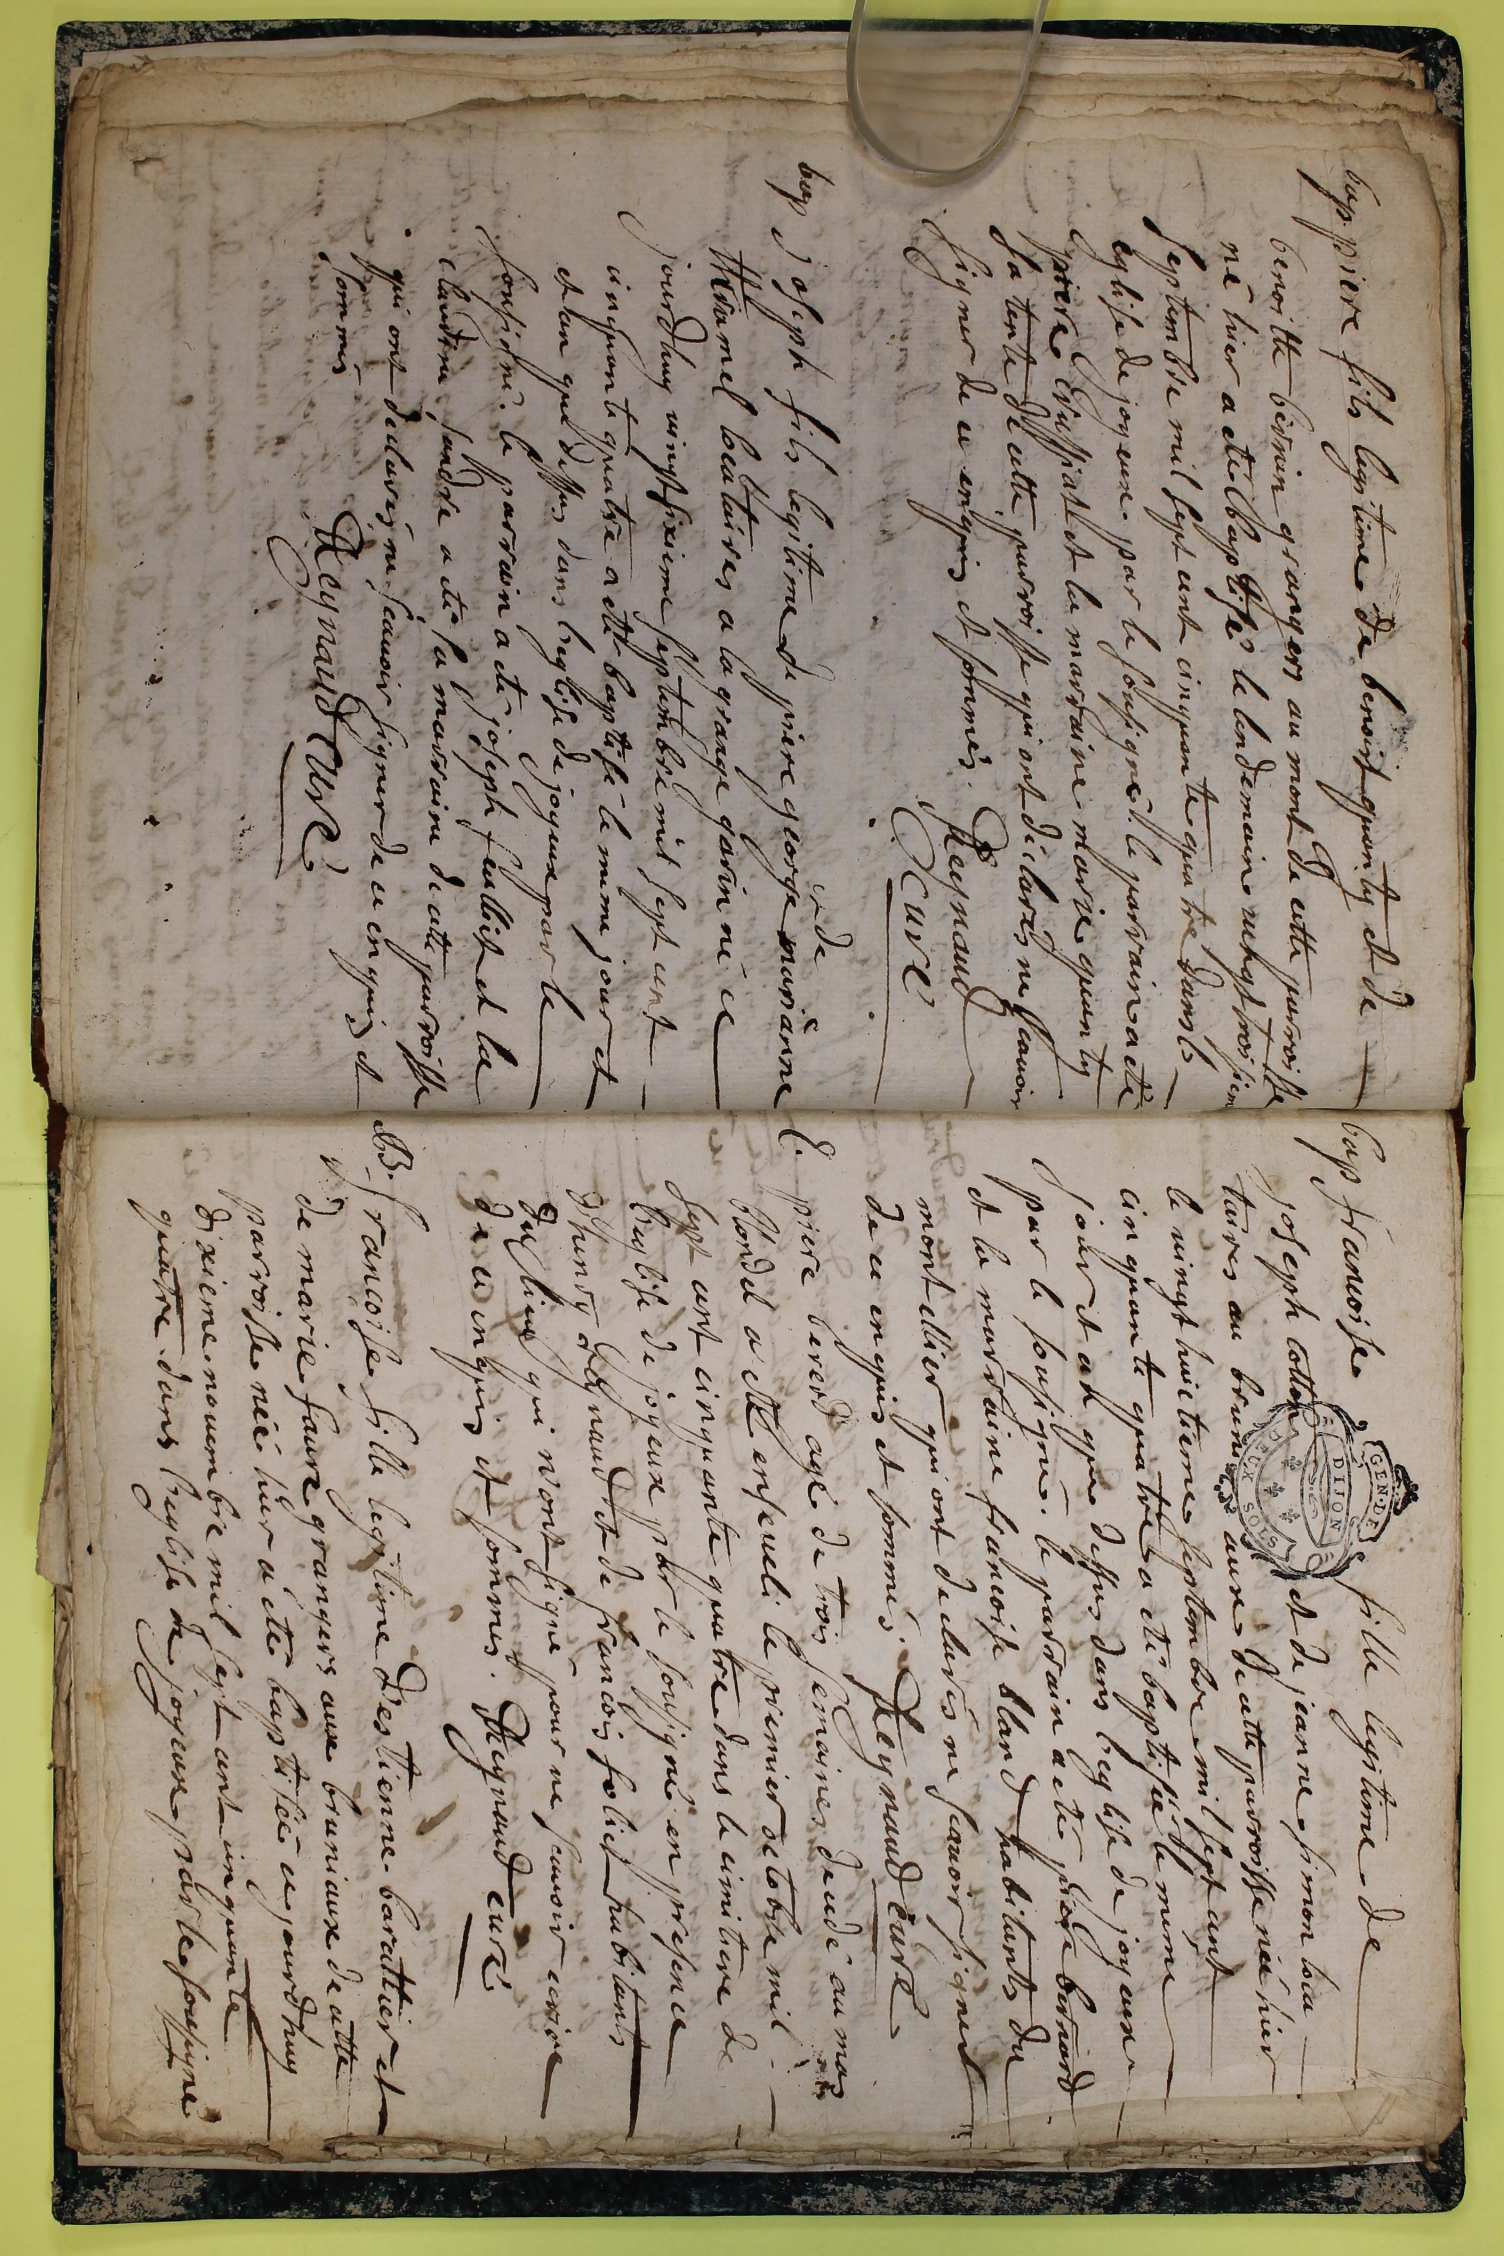 bap piere fils legitime de benoist quanty et de
benoitte bernin grangers au mont de cette paroisse
né hier a eté baptisé le lendemain vingt troisiem
septembre mil sept cent cinquante quatre dans l
eglise de joyeux par le sousigné le parrain a eté
piere et la marraine marie quanty
sa tente de cette parroisse qui ont déclarés ne scauoir
signer de ce enquis et sommés. Reynaud
curé
bap joseph fils legitime de piere george et de marianne
hamel locataires a la grange garin né ce
jourdhuy vingt sixieme septembre mil sept cent
cinquante quatre a eté baptisé le meme jour et
et an que dessus dans leglise de joyeux par le
sousigné. le parrain a eté joseph feuillet et la
claudine a eté la marraine de cette parroisse
qui ont déclarés ne scauoir signer de ce enquis et
sommés
Reynaud curé
bap francoise fille legitime de
joseph cotton et de jeanne simon loca
taires au bruni aux de cette parroisse néé hier
le vingt huictieme septembre mil sept cent
cinquante quatre a eté baptiséé le meme
jour et an que dessus dans leglise de joyeux
par le sousigné. le parrain a eté piere bernard
et la marraine francoise bland habitants du
montellier qui ont declarés ne scauoir signer
de ce enquis et sommés. Reynaud curé
E. piere bererd agé de trois semaines deude au mas
blondel a eté enseueli le premier octobre mil
sept cent cinquante quatre dans le cimitiere de
leglise de joyeux par le sousigné en presence
dhundy Reynaud et de francois foliet habitants
du lieux qui nont signé pour ne scauoir ecrire
de ce enquis et sommés. Reynaud curé
B. francoise fille legitime d'estienne barattier et
de marie faure grangers aux bruniaux de cette
parroisse néé hier a eté baptiséé ce jourdhuy
dixieme nouembre mil sept cent cinquante
quatre dans leglise de joyeux par le sousigné
GEN. DE
DIJON
DEUX SOLS